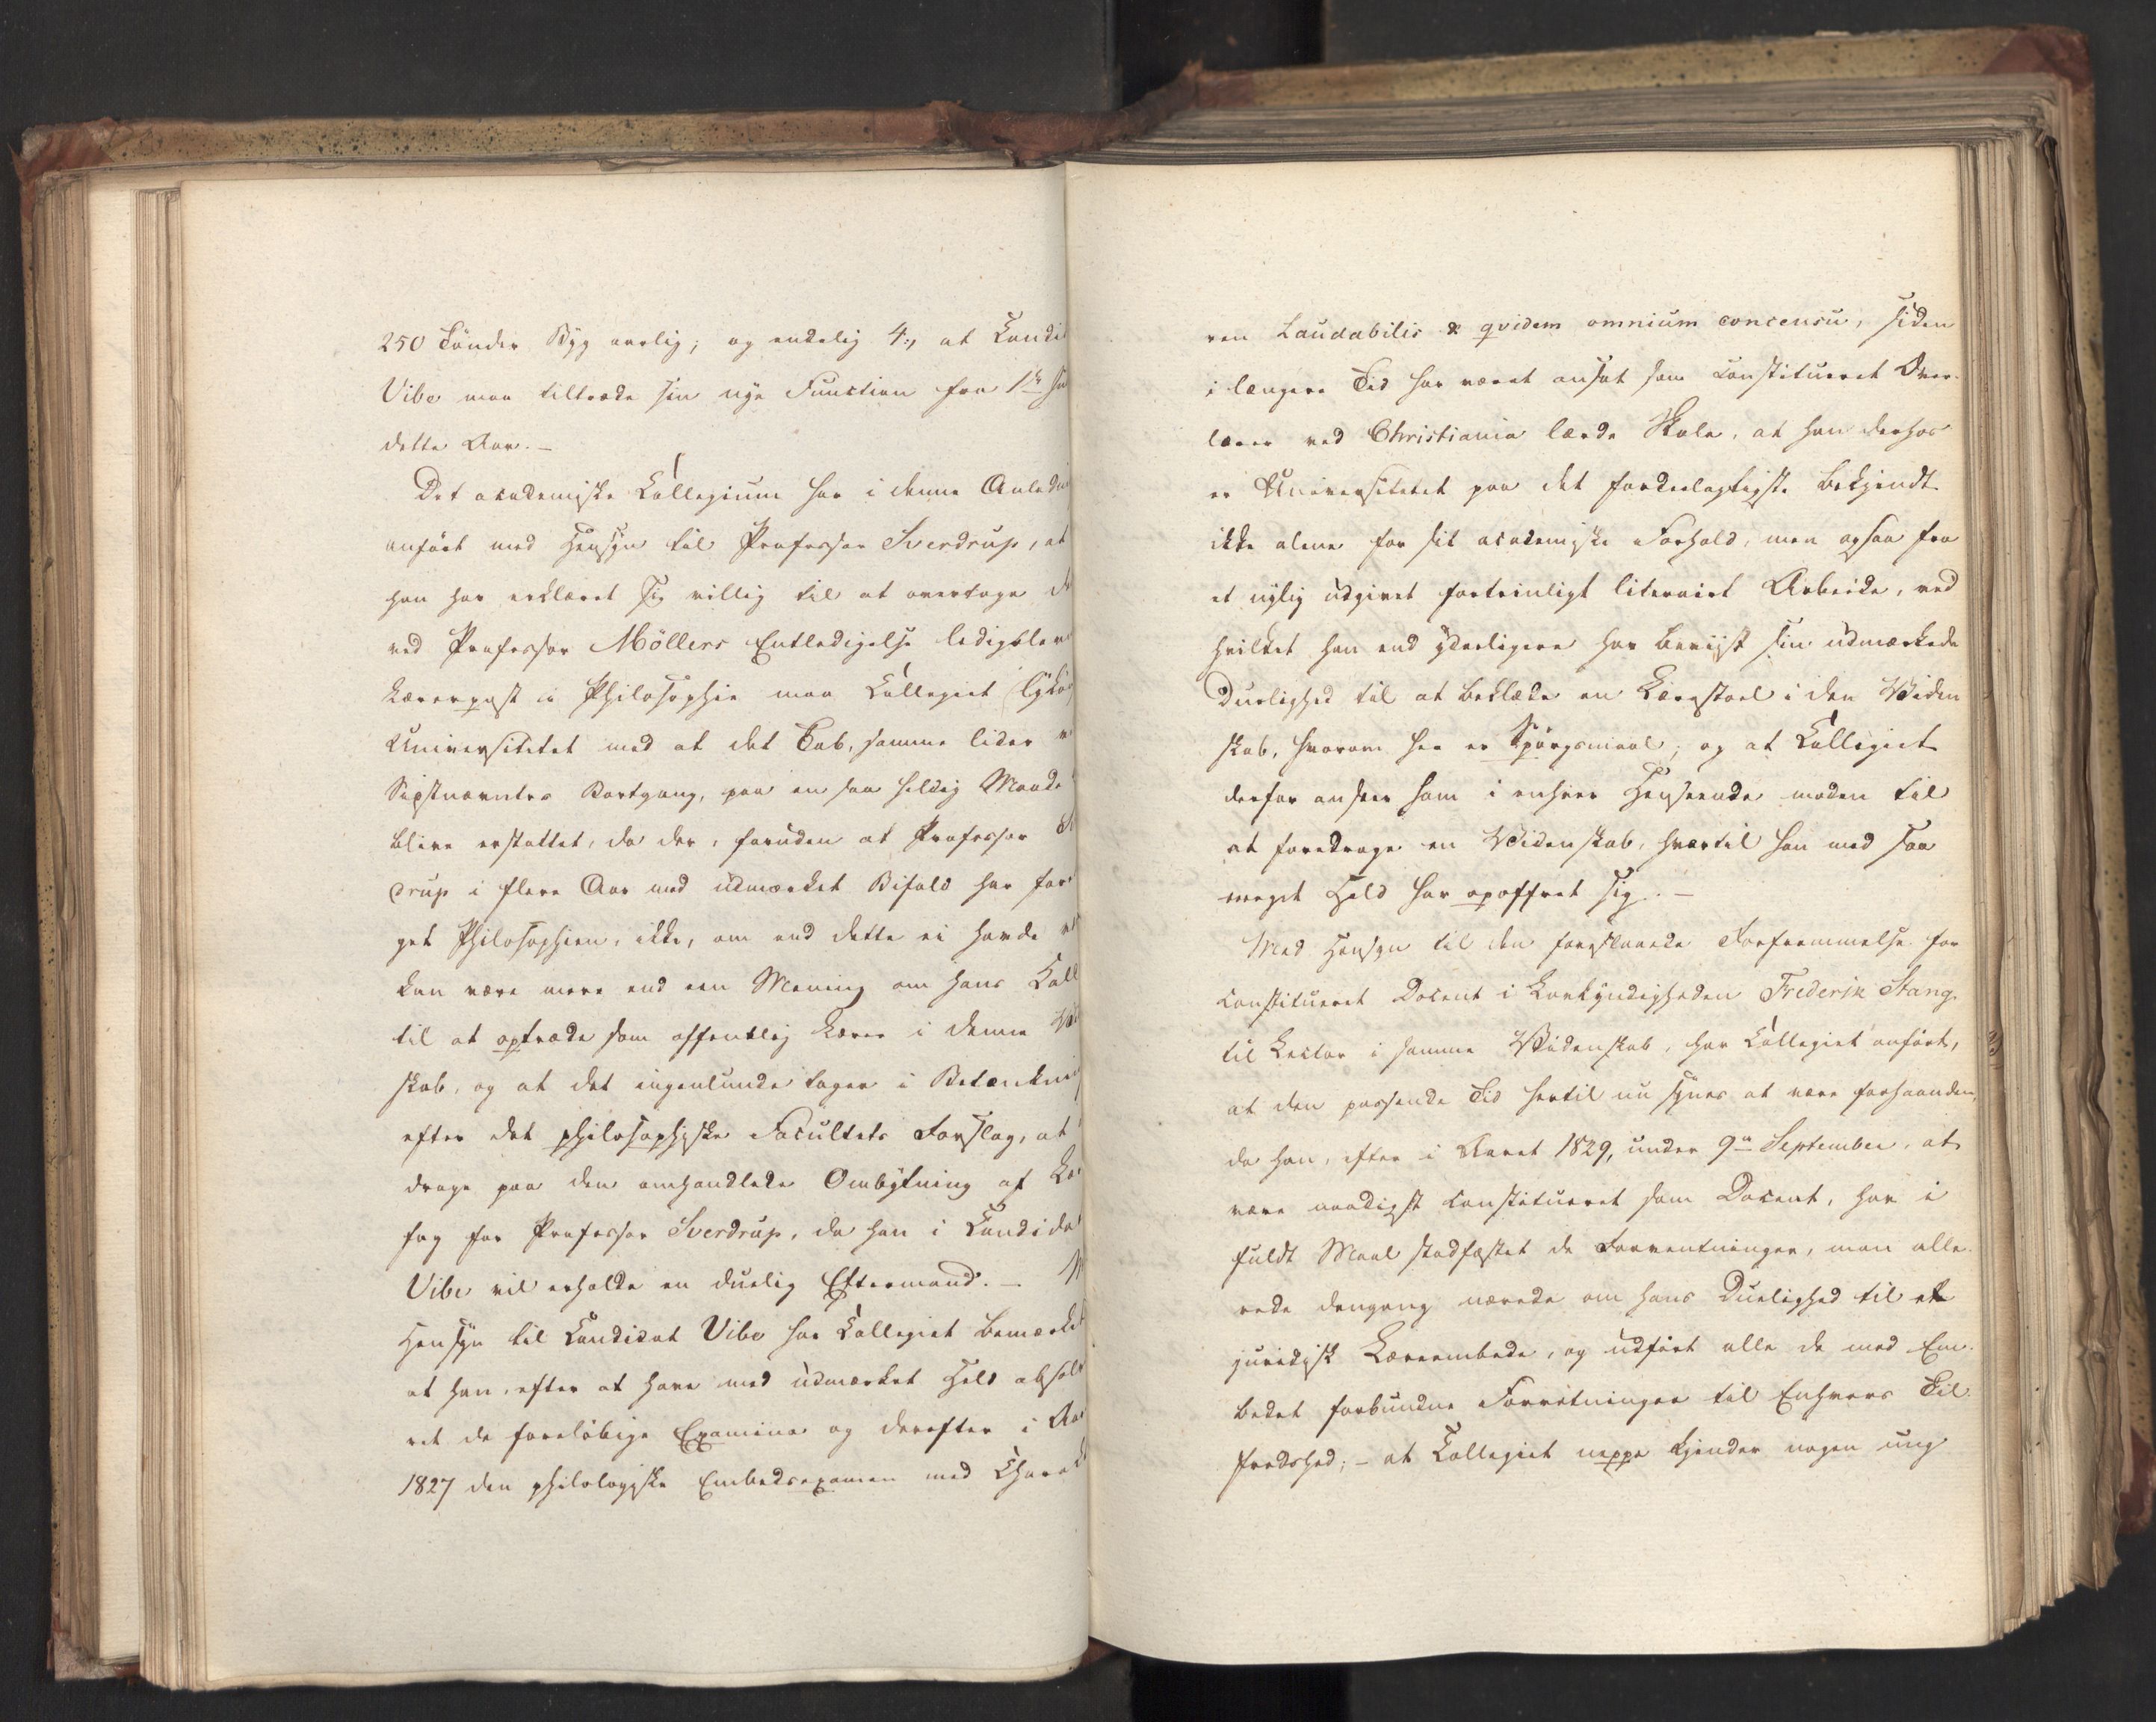 250 Tönder Byg aarlig; og endelig 4., at Candid
Vibe maa tiltræde sin nye Function fra 1ste
dette Aar. –
Det academiske Collegium har i denne Anledn
anført med Hensyn til Professor Sverdrup, at
han har erklæret sig villig til at overtage d
ved Professor Möllers Entledigelse ledigblev
Lærerpost i Philosophie maa Collegiet lykön
Universitetet med at det Tab, samme lider v
Sidstnævntes Bortgang, paa en saa heldig Maade
blive erstattet, da der, foruden at Professor S
drup i flere Aar med udmærket Bifald har fore
get Philosophien, ikke, om end dette ei havde v
kan være mere end een Mening om hans Kald
til at optræde som offentlig Lærer i denne Vid
skab, og at det ingenlunde tager i Betænkning
efter det philosophiske Facultets Forslag, at
drage paa den omhandlede Ombytning af Lær
fag for Professor Sverdrup, da han i Candidat
Vibe vil erholde en duelig Eftermand. – M
Hensyn til Candidat Vibe har Collegiet bemærket
at han, efter at have med udmærket Held absolv
ret de foreløbige Examina og derefter i Aar
1827 den philologiske Embedsexamen med Charak
ren Laudabilis & qvidem omnium concensu, siden
i længere Tid har været ansat som constitueret Over-
lærer ved Christiania lærde Skole, at han derhos
er Universitetet paa det fordeelagtigste bekjendt
ikke alene for sit academiske Forhold, men ogsaa fra
et nylig udgivet fortrinligt literairt Arbeide, ved
hvilket han end yderligere har beviist sin udmærkede
Duelighed til at beklæde en Lærestoel i den Viden
skab, hvorom her er Spørgsmaal; og at Collegiet
derfor anseer ham i enhver Henseende moden til
at foredrage en Videnskab, hvortil han med saa
meget Held har opoffret sig. –
Med Hensyn til den foreslaaede Forfremmelse for
constitueret Docent i Lovkyndigheden Frederik Stang
til Lector i samme Videnskab, har Collegiet anført,
at den passende Tid hertil nu synes at være forhaanden,
da han, efter i Aaret 1829, under 9de September, at
være naadigst constitueret som Docent, har i
fuldt Maal stadfæstet de Forventninger, man alle-
rede dengang nærede om hans Duelighed til et
juridisk Læreembede, og udført alle de med Em-
bedet forbundne Forretninger til Enhvers Til-
fredshed; – at Collegiet neppe kjender nogen ung